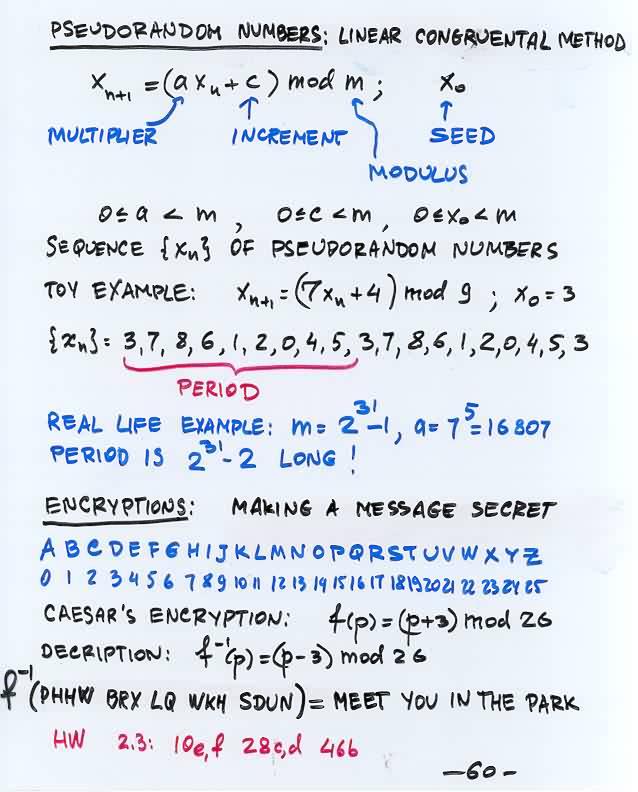 PSEUDORANDOM NUMBERS: LINEAR CONGRUENTAL METHOD
xₙ₊₁ = (a xₙ + c) mod m ; x₀
MULTIPLIER INCREMENT SEED
MODULUS
0 ≤ a < m , 0 ≤ c < m , 0 ≤ x₀ < m
SEQUENCE {xₙ} OF PSEUDORANDOM NUMBERS
TOY EXAMPLE: xₙ₊₁ = (7xₙ + 4) mod 9 ; x₀ = 3
{xₙ} = 3, 7, 8, 6, 1, 2, 0, 4, 5, 3, 7, 8, 6, 1, 2, 0, 4, 5, 3
PERIOD
REAL LIFE EXAMPLE: m = 2³¹-1, a = 7⁵ = 16807
PERIOD IS 2³¹-2 LONG !
ENCRYPTIONS: MAKING A MESSAGE SECRET
A B C D E F G H I J K L M N O P Q R S T U V W X Y Z
0 1 2 3 4 5 6 7 8 9 10 11 12 13 14 15 16 17 18 19 20 21 22 23 24 25
CAESAR'S ENCRYPTION: f(p) = (p+3) mod 26
DECRIPTION: f⁻¹(p) = (p-3) mod 26
f⁻¹(PHHW BRX LQ WKH SDUN) = MEET YOU IN THE PARK
HW 2.3: 10e,f 28c,d 46b
-60-